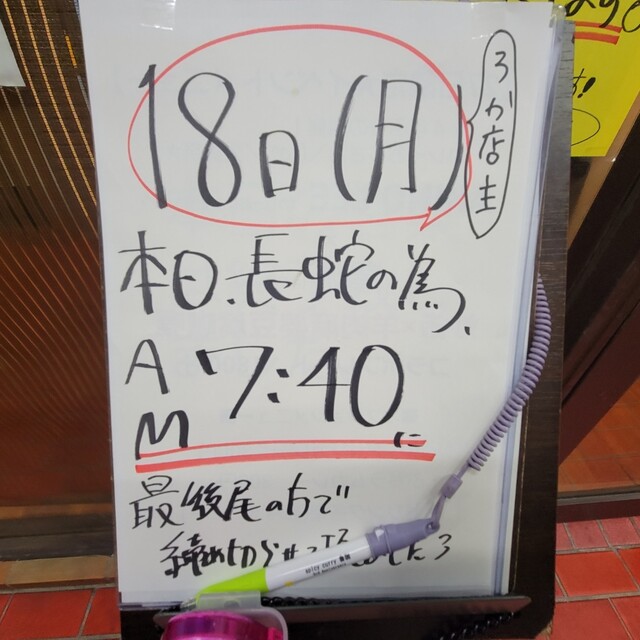 18日(月)
ろか店主
本日、長蛇の為、
AM 7:40に
最後尾の方で
締め切らせて
spicy curry 魯珈